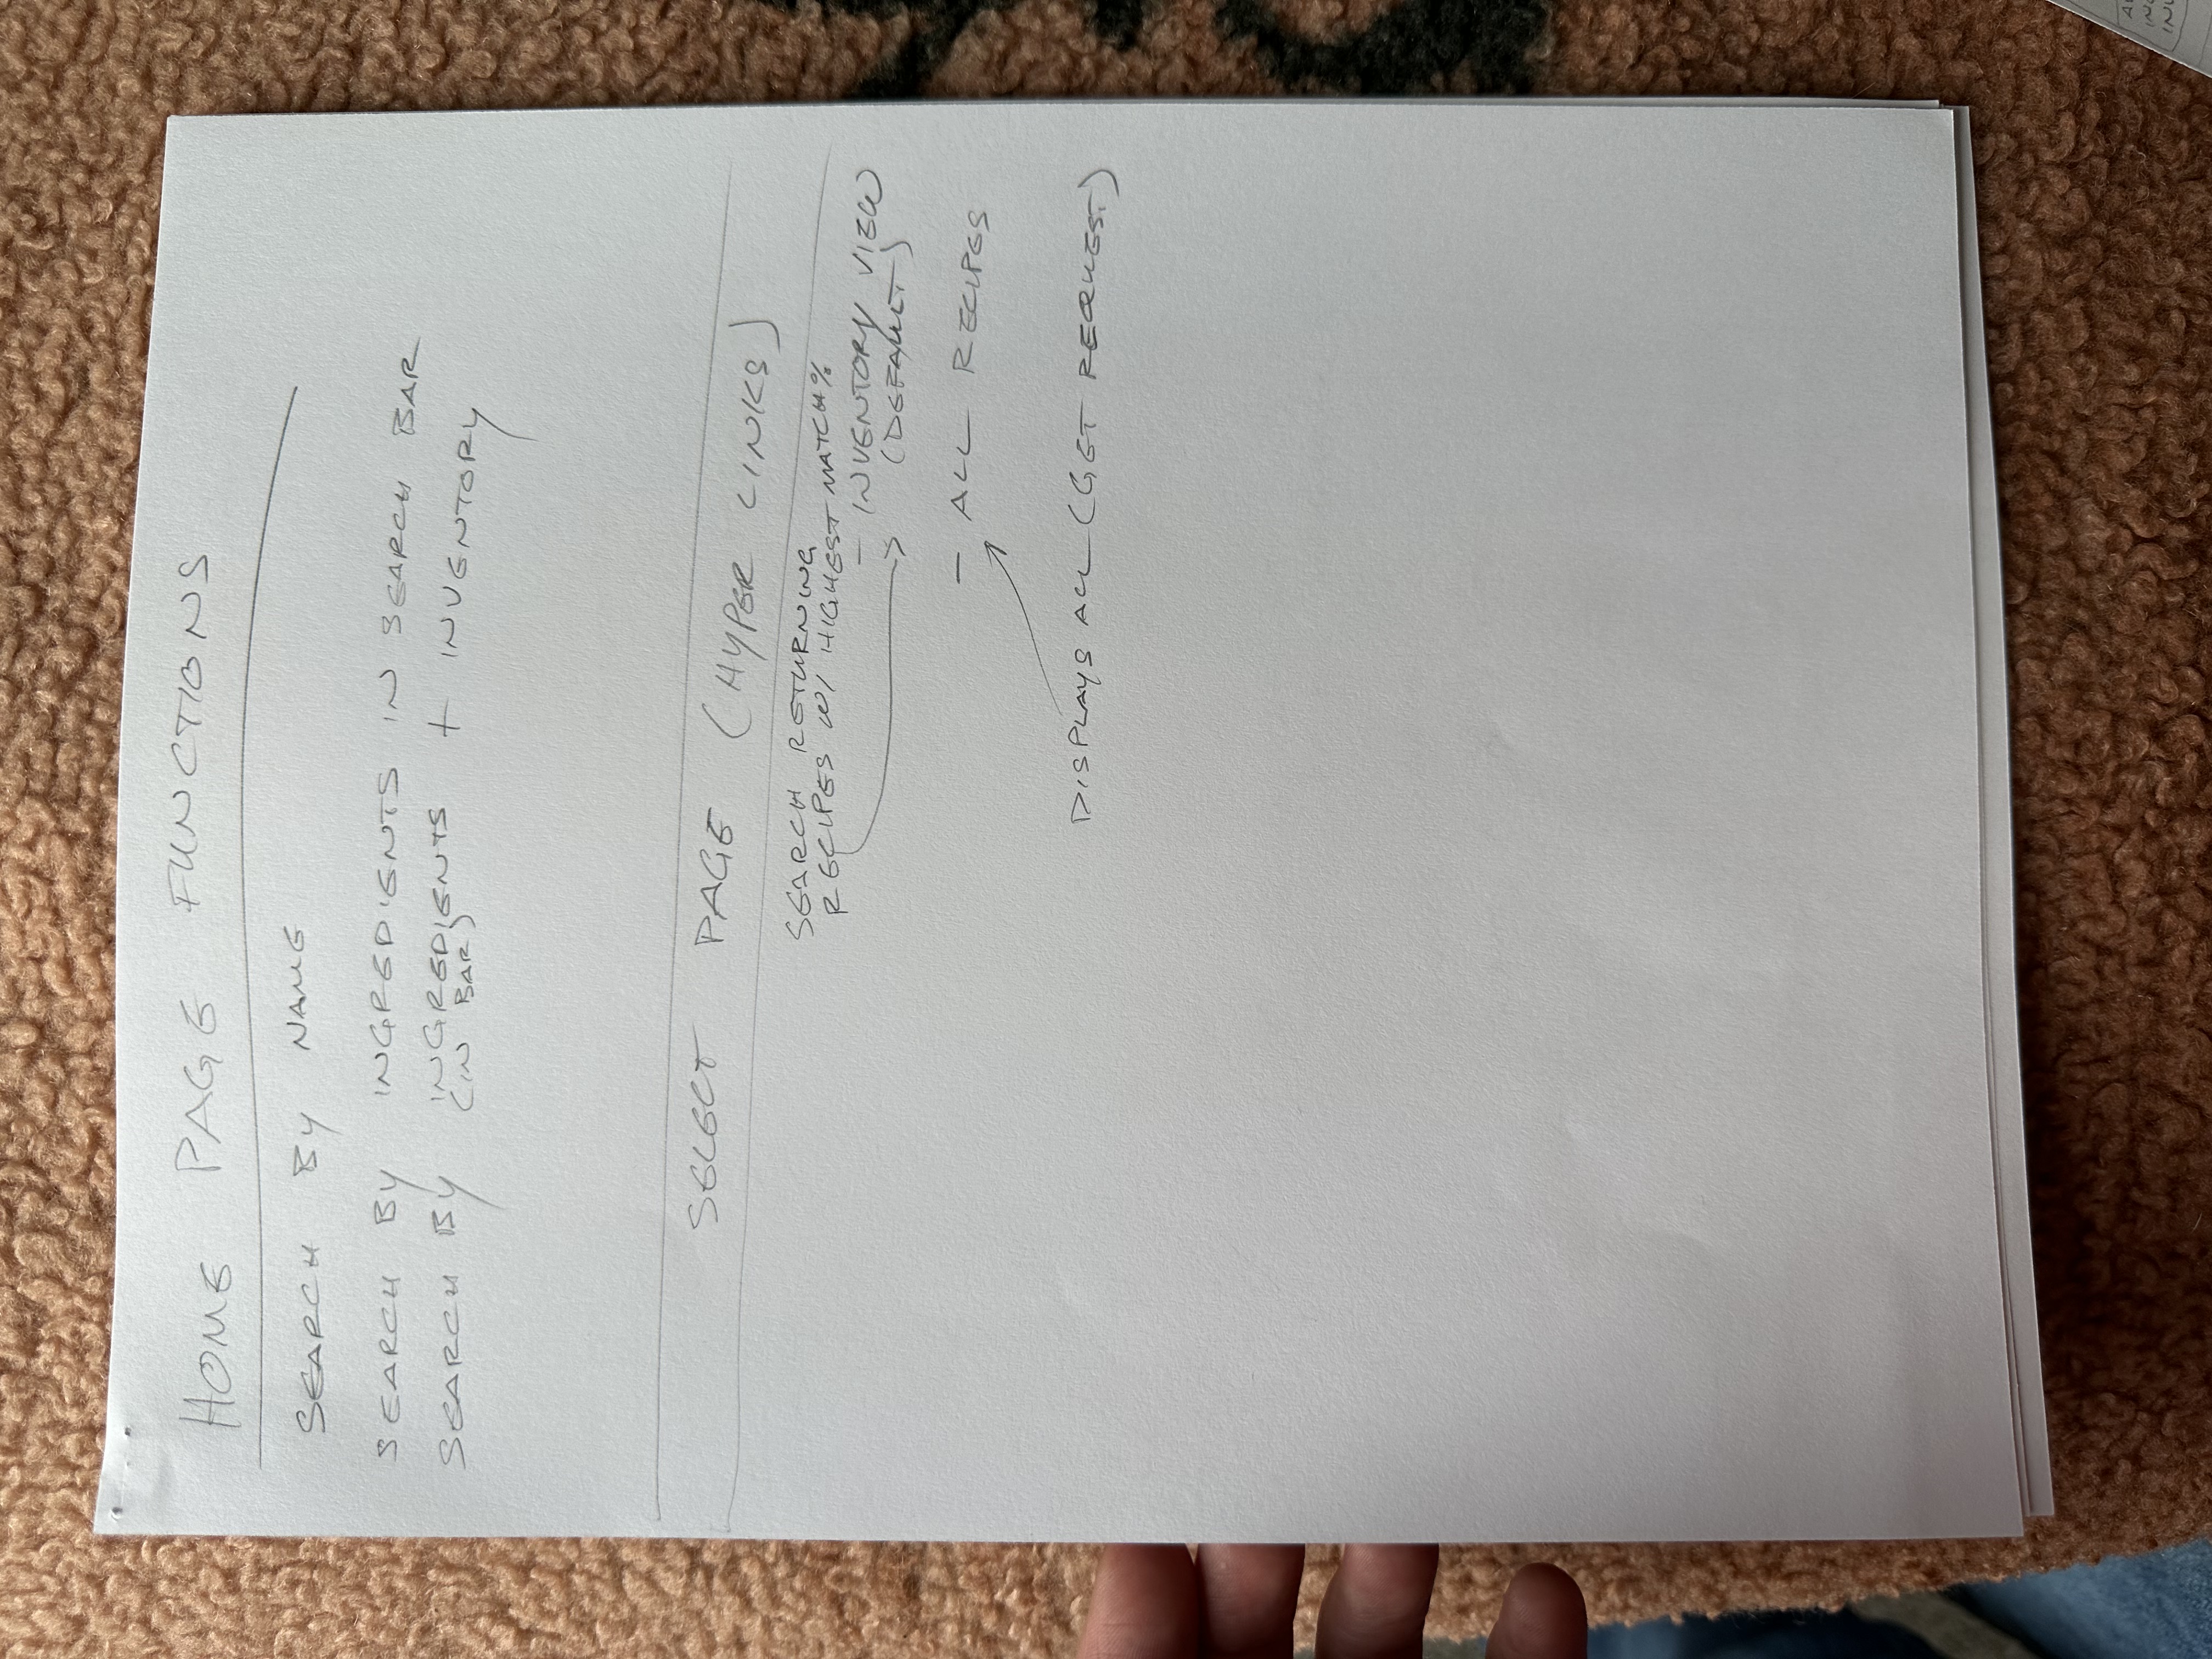 HOME PAGE FUNCTIONS
SEARCH BY NAME
SEARCH BY INGREDIENTS IN SEARCH BAR
SEARCH BY INGREDIENTS + INVENTORY
(IN BAR)
SELECT PAGE (HYPER LINKS)
SEARCH RETURNING
RECIPES W/ HIGHEST MATCH%
- INVENTORY VIEW
(DEFAULT)
- ALL RECIPES
DISPLAYS ALL (GET REQUEST)